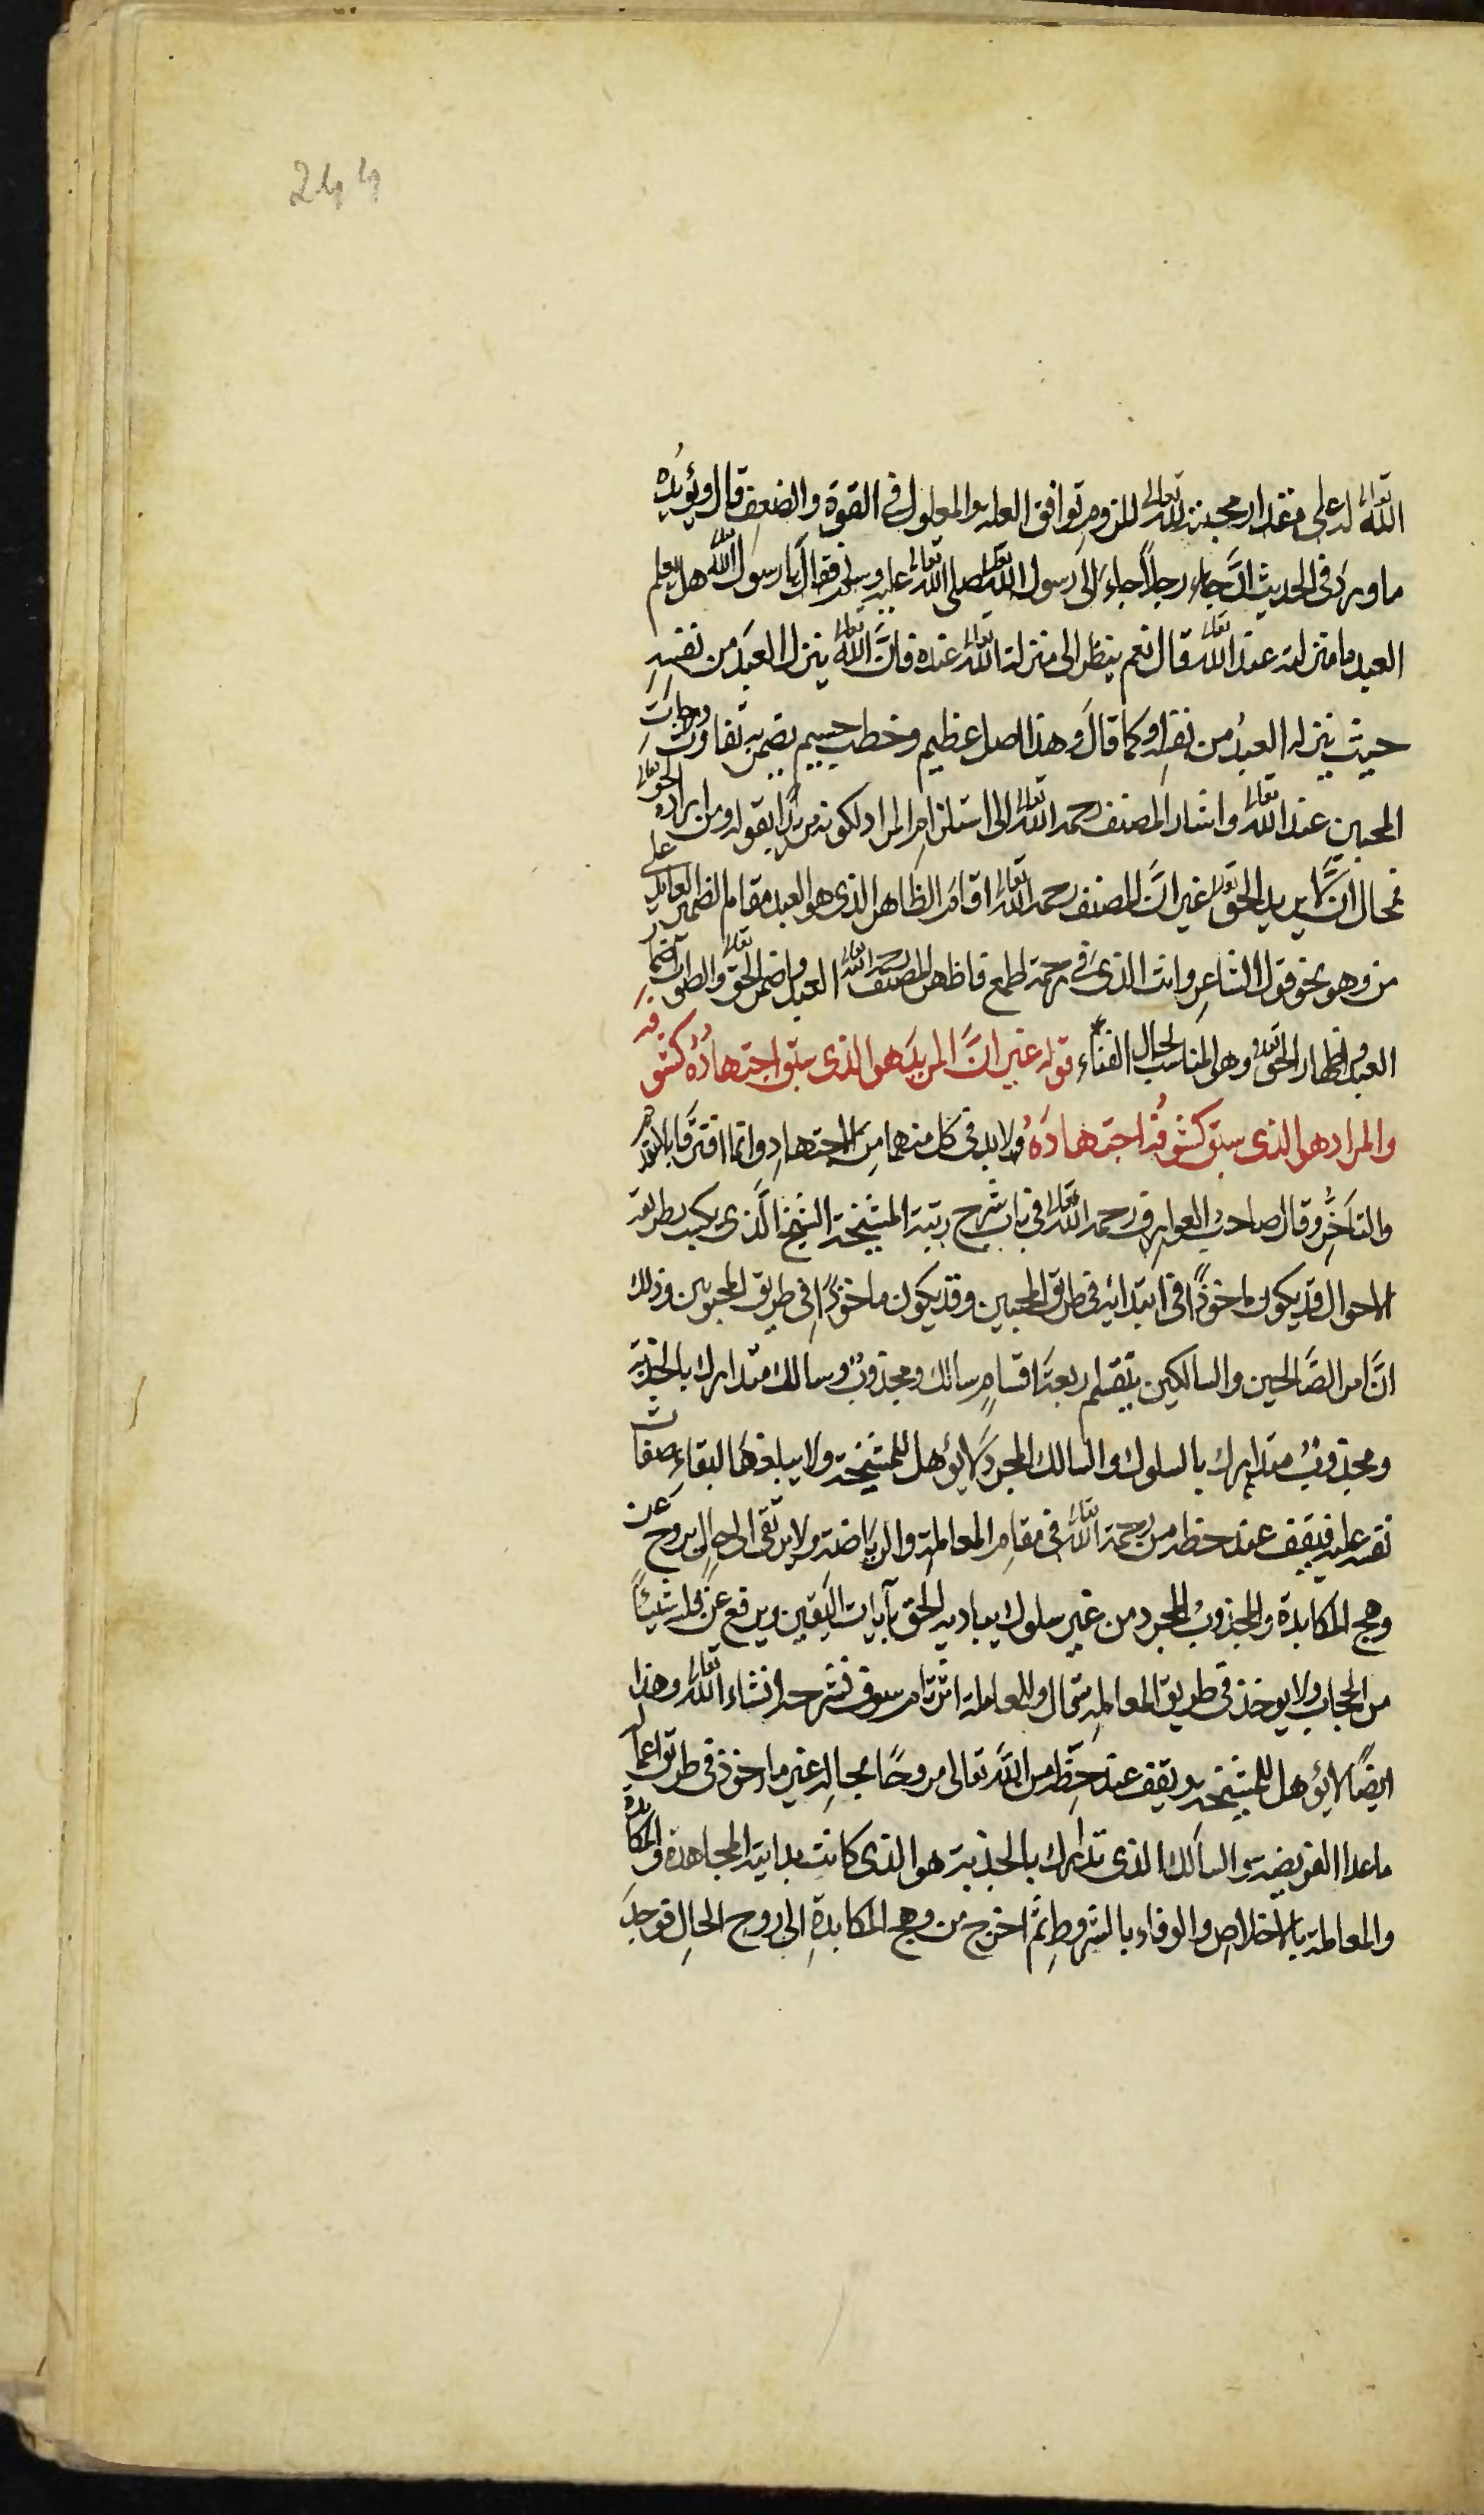 244
الله تعالى له على مقدار محبته لله تعالى للزوم توافق العلة والمعلول في القوة والضعف قال ويؤيده
ما ورد في الحديث ان جاء رجلاً جاء الى رسول الله تعالى صلى الله تعالى عليه وسلم فقال يا رسول الله تعالى هل يعلم
العبد ما منزلته عند الله تعالى قال نعم ينظر الى منزلة الله تعالى عنده فانَّ الله تعالى ينزل العبد من نفسه
حيث ينزله العبد من نفسه او كما قال وهذا اصل عظيم وخطب جسيم يضمن به تفاوت درجات
المحبين عند الله تعالى واشار المصنف رحمه الله تعالى الى استلزام المراد لكونه مريدًا بقوله ومن اراده الحق تعالى
فمحال ان لا يريد الحق تعالى غير انَّ المصنف رحمه الله تعالى اقام الظاهر الذي هو العبد مقام الضمير العايد على
من وهو نحو قول الشاعر وانت الذي في رحمة اطمع فاظهر المصنف رحمه الله تعالى العبد واضمر الحق تعالى والصواب اضمار
العبد واظهار الحق تعالى وهو المناسب لحال الفناء قوله غير انَّ المريد هو الذي سبق اجتهاده كشوفه
والمراد هو الذي سبق كشوفه اجتهاده ولا بد في كل منهما من الاجتهاد وانما افترقا بالتقدم
والتأخر وقال صاحب العوارف رحمه الله تعالى في باب شرح رتبة المشيخة الشيخ الذي يكتب بطريقه
الاحوال قد يكون ماخوذًا في ابتدائه في طريق المحبين وقد يكون ماخوذًا في طريق المحبوبين وذلك
انَّ امر الصَّالحين والسالكين ينقسم اربعة اقسام سالك ومجذوب وسالك متدارك بالجذبة
ومجذوب متدارك بالسلوك والسالك المجرد لا يؤهل للمشيخة ولا يبلغها لبقاء صفات
نفسه عليه فيقف عند حظه من رحمة الله تعالى في مقام المعاملة والرياضة ولا يرتقي الى حال يروح عن
وهج المكابدة والمجذوب المجرد من غير سلوك يباديه الحق بآيات اليقين ويرفع عن قلبه شيئًا
من الحجاب ولا يوخذ في طريق المعاملة قال وللمعاملة اثر تام سوف نشرحه ان شاء الله تعالى وهذا
ايضًا لا يؤهل للمشيخة ويقف عند حظه من الله تعالى مروحًا بحاله غير ماخوذ في طريق اعماله
ماعدا الفريضة والسالك الذي تدارك بالجذبة هو الذي كانت بدايته المجاهدة والمكابدة
والمعاملة بالاخلاص والوفاء بالشروط ثم اخرج من وهج المكابدة الى روح الحال فوجد